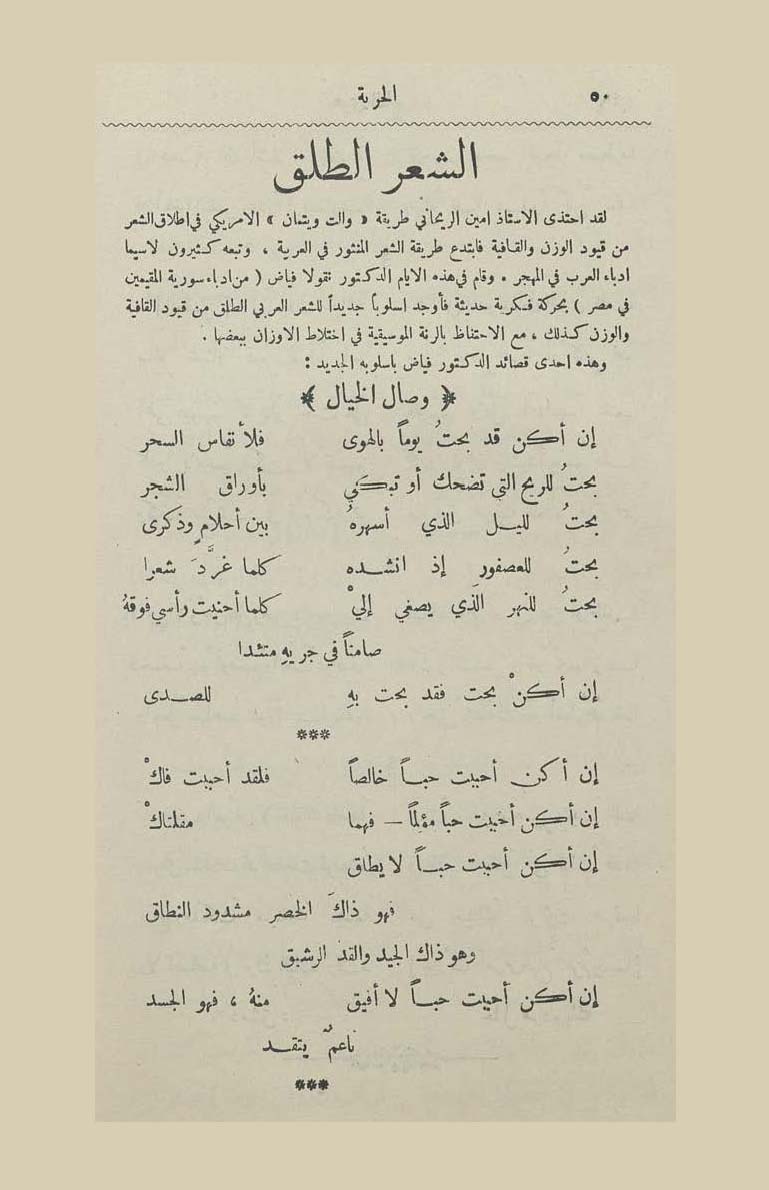 ٥٠ الحرية
الشعر الطلق
لقد احتذى الاستاذ امين الريحاني طريقة « والت ويتمان » الامريكي في اطلاق الشعر
من قيود الوزن والقافية فابتدع طريقة الشعر المنثور في العربية ، وتبعه كثيرون لاسيما
ادباء العرب في المهجر . وقام في هذه الايام الدكتور نقولا فياض ( من ادباء سورية المقيمين
في مصر ) بحركة فكرية حديثة فأوجد اسلوباً جديداً للشعر العربي الطلق من قيود القافية
والوزن كذلك ، مع الاحتفاظ بالرنة الموسيقية في اختلاط الاوزان ببعضها .
وهذه احدى قصائد الدكتور فياض باسلوبه الجديد :
﴿ وصال الخيال ﴾
إن أكن قد بحتُ يوماً بالهوى فلأنفاس السحر
بحتُ للريح التي تضحك أو تبكي بأوراق الشجر
بحتُ لليل الذي أسهرهُ بين أحلامٍ وذكرى
بحتُ للعصفور إذ انشده كلما غرَّدَ شعرا
بحتُ للنهر الذي يصغي إليْ كلما أحنيت رأسي فوقهُ
صامتاً في جريهِ متئدا
إن أكنْ بحت فقد بحت بهِ للصدى
***
إن أكن أحببت حباً خالصاً فلقد أحببت فاكْ
إن أكن أحببت حباً مؤلماً — فهما مقلتاكْ
إن أكن أحببت حباً لا يطاق
فهو ذاكَ الخصر مشدود النطاق
وهو ذاك الجيد والقد الرشيق
إن أكن أحببت حباً لا أفيق منهُ ، فهو الجسد
ناعمٌ يتقد
***